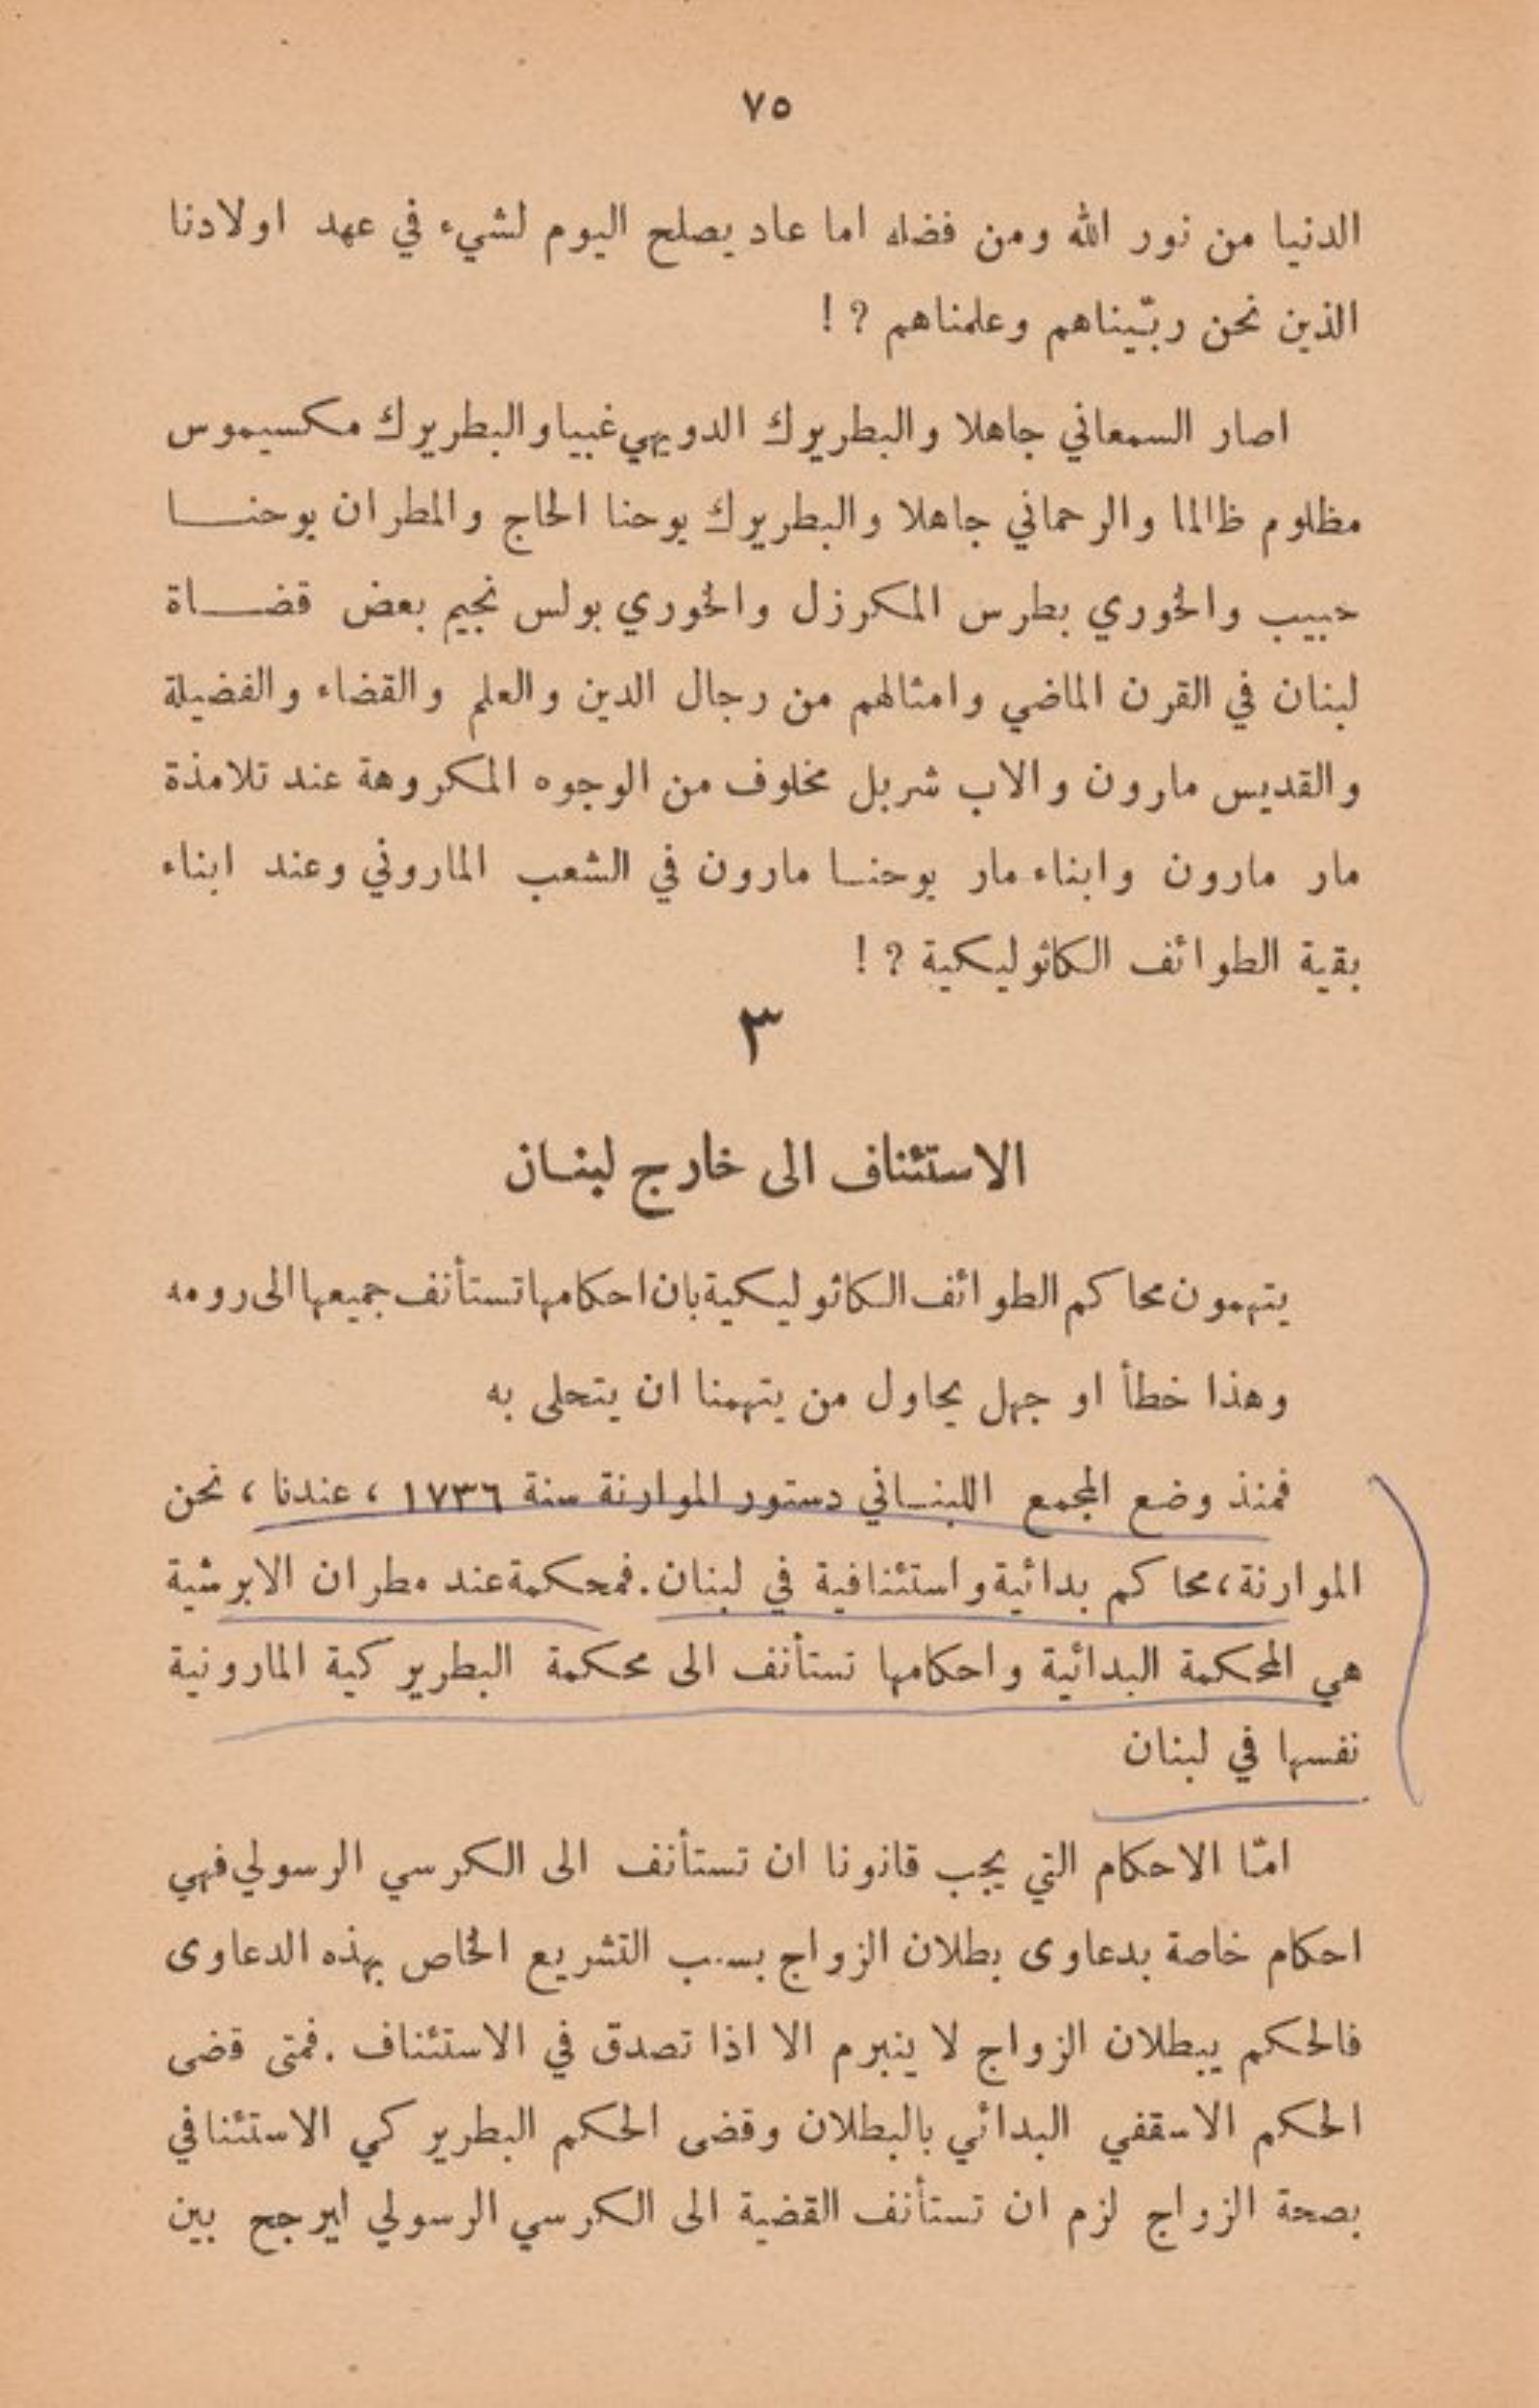 ٧٥
الدنيا من نور الله ومن فضله اما عاد يصلح اليوم لشيء في عهد اولادنا
الذين نحن ربّيناهم وعلمناهم ? !
اصار السمعاني جاهلا والبطريرك الدويهي غبيا والبطريرك مكسيموس
مظلوم ظالما والرحماني جاهلا والبطريرك يوحنا الحاج والمطران يوحنا
حبيب والخوري بطرس المكرزل والخوري بولس نجيم بعض قضاة
لبنان في القرن الماضي وامثالهم من رجال الدين والعلم والقضاء والفضيلة
والقديس مارون والاب شربل مخلوف من الوجوه المكروهة عند تلامذة
مار مارون وابناء مار يوحنا مارون في الشعب الماروني وعند ابناء
بقية الطوائف الكاثوليكية ? !
٣
الاستئناف الى خارج لبنان
يتهمون محاكم الطوائف الكاثوليكية بان احكامها تستأنف جميعها الى رومه
وهذا خطأ او جهل يحاول من يتهمنا ان يتحلى به
فمنذ وضع المجمع اللبناني دستور الموارنة سنة ١٧٣٦ ، عندنا ، نحن
الموارنة، محاكم بدائية واستئنافية في لبنان . فمحكمة عند مطران الابرشية
هي المحكمة البدائية واحكامها تستأنف الى محكمة البطريركية المارونية
نفسها في لبنان
امّا الاحكام التي يجب قانونا ان تستأنف الى الكرسي الرسولي فهي
احكام خاصة بدعاوى بطلان الزواج بسبب التشريع الخاص بهذه الدعاوى
فالحكم يبطلان الزواج لا ينبرم الا اذا تصدق في الاستئناف . فمتى قضى
الحكم الاسقفي البدائي بالبطلان وقضى الحكم البطريركي الاستئنافي
بصحة الزواج لزم ان تستأنف القضية الى الكرسي الرسولي ايرجح بين